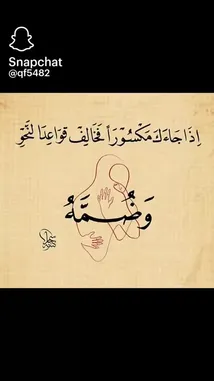 Snapchat
@qf5482
إِذَا جَاءَكَ مَكْسُوْرَاً فَخَالِفْ قَوَاعِدَ النَّحْوِ
وَضُمَّهُ